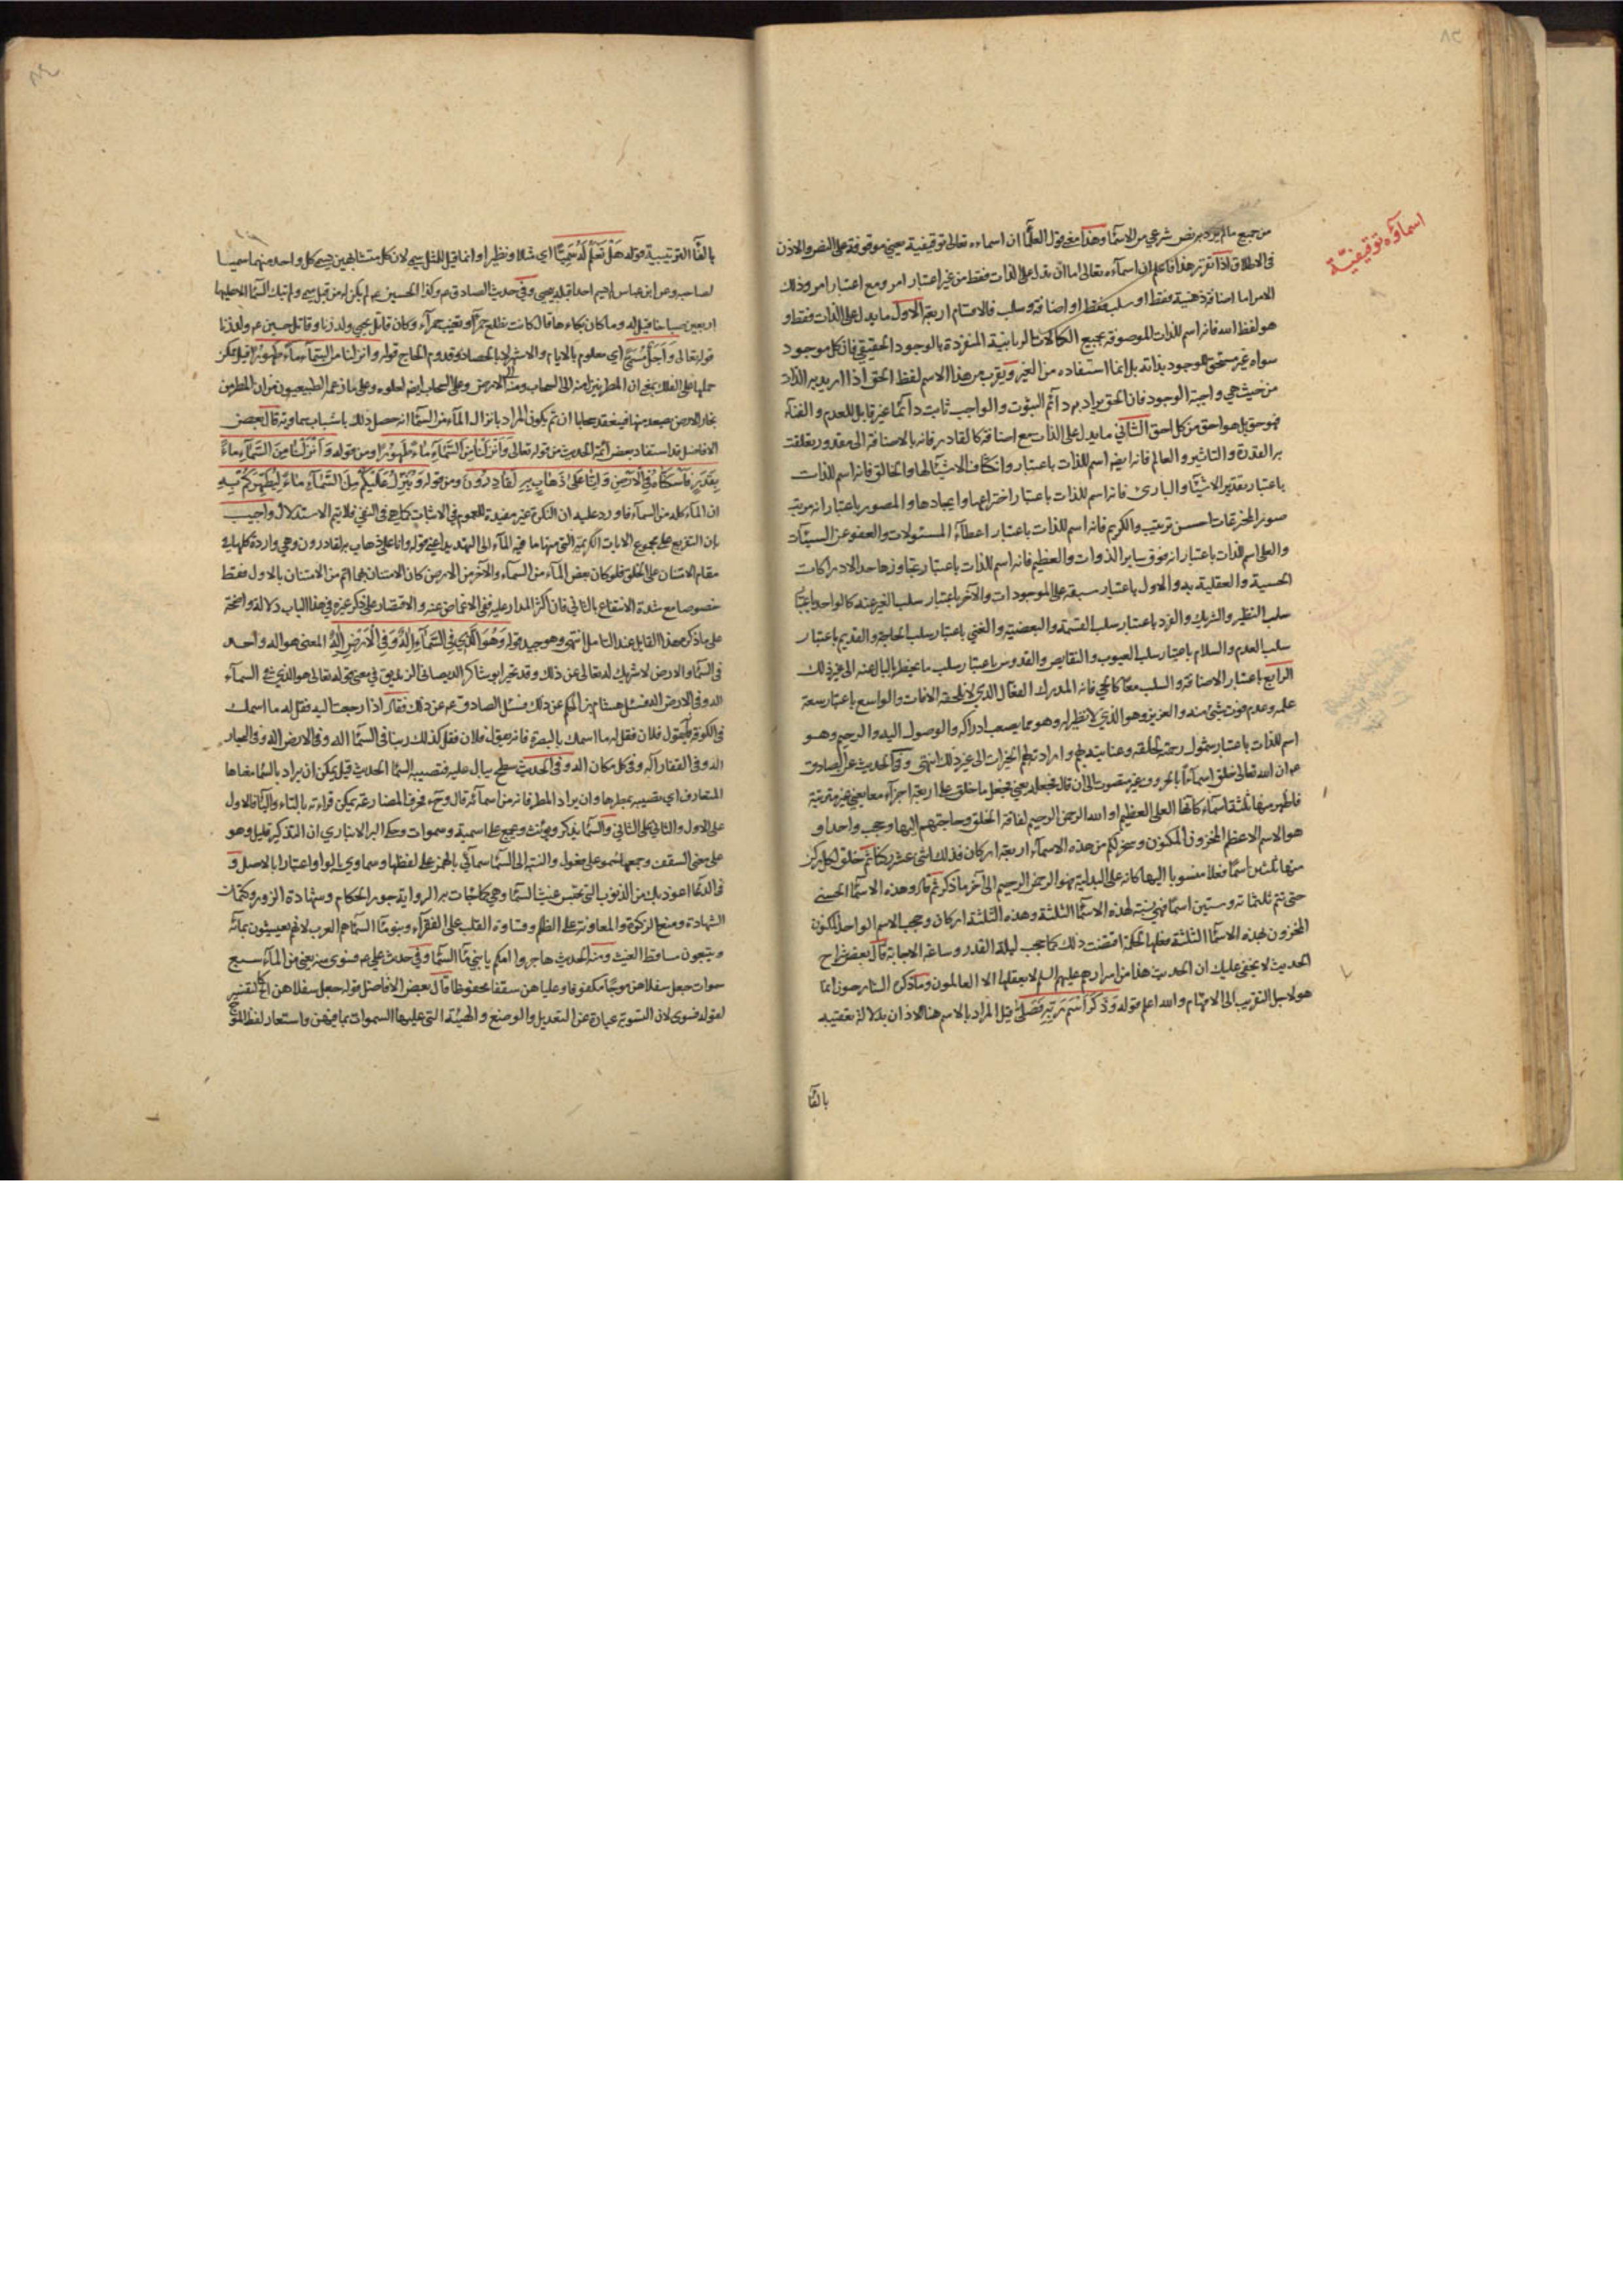 اسماؤه توقيفيّة
من جميع ما لم يرد به نص شرعي من الاسمآء وهذا معنى قول العلمآء ان اسماءه تعالى توقيفية يعني موقوفة على النص والاذن
في الاطلاق اذا تقرر هذا فاعلم ان اسمآءه تعالى اما ان تدل على الذات فقط من غير اعتبار امر او مع اعتبار امر وذلك
الامر اما اضافة ذهنية فقط او سلب فقط او اضافة وسلب فالاقسام اربعة الاول ما يدل على الذات فقط و
هو لفظ الله فانه اسم للذات الموصوفة بجميع الكمالات الربانية المنفردة بالوجود الحقيقي فان كل موجود
سواه غير مستحق للوجود بذاته بل انما استفاده من الغير ويقرب من هذا الاسم لفظ الحق اذا اريد به الذات
من حيث هي واجبة الوجود فان الحق يراد به دائم الثبوت والواجب ثابت دائما غير قابل للعدم والفنآء
فهو حق بل هو احق من كل احق الثاني ما يدل على الذات مع اضافة كالقادر فانه بالاضافة الى مقدور تعلقت
به القدرة والتاثير والعالم فانه ايضا اسم للذات باعتبار وانكشاف الاشيآء لها والخالق فانه اسم للذات
باعتبار تقدير الاشيآء والبارئ فانه اسم للذات باعتبار اختراعها وايجادها والمصور باعتبار انه مرتب
صور المخترعات احسن ترتيب والكريم فانه اسم للذات باعتبار اعطآء المسئولات والعفو عن السيئات
والعلي اسم للذات باعتبار انه فوق ساير الذوات والعظيم فانه اسم للذات باعتبار تجاوزها حد الادراكات
الحسية والعقلية والاول باعتبار سبقه على الموجودات والآخر باعتبار سلب الغير عنه كالواحد باعتبار
سلب النظير والشريك والفرد باعتبار سلب القسمة والبعضية والغني باعتبار سلب الحاجة والقديم باعتبار
سلب العدم والسلام باعتبار سلب العيوب والنقايص والقدوس باعتبار سلب ما يخطر بالبال عنه الى غير ذلك
الرابع باعتبار الاضافة والسلب معا كالحي فانه المدرك الفعال الذي لا تلحقه الافات والواسع باعتبار سعة
علمه وعدم فوت شئ منه والعزيز وهو الذي لا نظير له وهو مما يصعب ادراكه والوصول اليه والرحيم وهو
اسم للذات باعتبار شمول رحمته لخلقه وعنايته بهم وارادته لهم الخيرات الى غير ذلك انتهى وفي الحديث عن الصادق
عم ان الله تعالى خلق اسمآءً بالحروف غير مصوت الى ان قال فجعله يعني فجعل ما خلق على اربعة اجزآء معا يعني غير مترتبة
فاظهر منها ثلثة اسمآء كانها العلي العظيم او الله الرحمن الرحيم لفاقة الخلق وحاجتهم اليها وحجب واحدا و
هو الاسم الاعظم المخزون المكنون وسخر لكم من هذه الاسمآء اربعة اركان فذلك اثنى عشر ركنا ثم خلق لكل ركن
منها ثلثين اسمآ فعلا منسوبا اليها كانه على البدلية فهو الرحمن الرحيم الى آخر ما ذكر ثم قال وهذه الاسمآء الحسنى
حتى تتم ثلثمائة وستين اسمآ فهي نسبة لهذه الاسمآء الثلثة وهذه الثلثة اركان وحجب الاسم الواحد المكنون
المخزون بهذه الاسمآء الثلثة فعلها لحكمة اقتضت ذلك كما حجب ليلة القدر وساعة الاجابة قال بعض شراح
الحديث لا يخفى عليك ان الحديث هذا من اسرارهم عليهم السلم لا يعقلها الا العالمون وما ذكره الشارحون انما
هو لاجل التقريب الى الافهام والله اعلم قوله وَذَكَرَ اسْمَ رَبِّهِ فَصَلَّى قيل المراد بالاسم هنا الاذان بدلالة تعقيبه
بالفآ
بالفآء الترتيبية قوله هَلْ تَعْلَمُ لَهُ سَمِيًّا اي مثلا ونظيرا وانما قيل للمثل سمي لان كل متشابهين يسمى كل واحد منهما سميا
لصاحبه وعن ابن عباس لم يسم احدا قبله بيحيى وفي حديث الصادق عم وكذا الحسين عم لم يكن له من قبل سمي ولم تبك السمآء الا عليها
اربعين صباحا قيل له وما كان بكاءها قال كانت تطلع حمرآء وتغيب حمرآء وكان قاتل يحيى ولد زنا وقاتل حسين عم ولد زنا
قوله تعالى وَاَجَلٌ مُسَمًّى اي معلوم بالايام والاشهر لا بالحصاد وقدوم الحاج قوله وانزلنا من السَّمَآءِ مآءً طَهُورًا قيل يمكن
حملها على الفلك بمعنى ان المطر ينزل منه الى السحاب ومنه الى الارض وعلى السحاب ايضا لعلوه وعلى ما زعمه الطبيعيون من ان المطر من
بخار الارض يصعد منها فينعقد سحابا ان تم يكون المراد بانزال المآء من السمآء انه حصل ذلك باسباب سماوية قال بعض
الافاضل قد استفاد بعض ائمة الحديث من قوله تعالى وَاَنْزَلْنَا مِنَ السَّمَآءِ مَاءً طَهُورًا ومن قوله وَاَنْزَلْنَا مِنَ السَّمَآءِ مَاءً
بِقَدَرٍ فَاَسْكَنَّاهُ فِي الْاَرْضِ وَاِنَّا عَلَى ذَهَابٍ بِهِ لَقَادِرُونَ ومن قوله وَيُنَزِّلُ عَلَيْكُمْ مِنَ السَّمَآءِ مَاءً لِيُطَهِّرَكُمْ بِهِ
ان المآء كله من السمآء فاورد عليه ان النكرة غير مفيدة للعموم في الاثبات كما هي في النفي فلا يتم الاستدلال واجيب
بان التفريع على مجموع الايات الكريمة التي منها ما فيه المآء الى التهديد اعني قوله وانا على ذهاب به لقادرون وهي واردة كلها في
مقام الامتنان على الخلق فلو كان بعض المآء من السمآء والآخر من الارض كان الامتنان بهما اتم من الامتنان بالاول فقط
خصوصا مع شدة الانتفاع بالثاني فان اكثر المدار عليه ففي الاغماض عنه والاقتصار على ذكر غيره في هذا الباب دلالة واضحة
على ما ذكره هذا القايل عند التامل انتهى وهو جيد قوله وَهُوَ الَّذِي فِي السَّمَآءِ اِلَهٌ وَفِي الْاَرْضِ اِلَهٌ المعنى هو اله واحد
في السمآء والارض لا شريك له تعالى عن ذلك وقد تحير ابو شاكر الديصاني الزنديق في معنى قوله تعالى هو الذي في السمآء
اله وفي الارض اله فسئل هشام بن الحكم عن ذلك فسئل الصادق عم عن ذلك فقال اذا رجعت اليه فقل له ما اسمك
في الكوفة فانه يقول فلان فقل له ما اسمك بالبصرة فانه يقول فلان فقل كذلك ربنا في السمآء اله وفي الارض اله وفي البحار
اله وفي القفار اله وفي كل مكان اله وفي الحديث سطح يبال عليه فتصيبه السمآء الحديث قيل يمكن ان يراد بالسمآء معناها
المتعارف اي تصيبه بمطرها وان يراد المطر فانه من اسمائه قال وحرف المضارعة يمكن قراءته بالتاء والياء فالاول
على الاول والثاني على الثاني والسمآء يذكر ويؤنث ويجمع على اسمية وسموات وحكى ابن الانباري ان التذكير قليل وهو
على معنى السقف وجمعها سُمو على فعول والنسبة الى السمآء سمآئي بالهمز على لفظها وسماوي بالواو اعتبارا بالاصل و
في الدعاء اعوذ بك من الذنوب التي تحبس غيث السمآء وهي كما جاءت به الرواية جور الحكام وشهادة الزور وكتمان
الشهادة ومنع الزكوة والمعاونة على الظلم وقساوة القلب على الفقرآء وبنو مآء السمآء هم العرب لانهم يعيشون بمائه
ويتبعون مساقط الغيث ومنه الحديث هاجر امكم يا بني مآء السمآء وفي حديث علي عم فسوى منه يعني من المآء سبع
سموات جعل سفلاهن موجًا مكفوفا وعلياهن سقفا محفوظا قال بعض الافاضل قوله جعل سفلاهن الخ كالتفسير
لقوله فسوى لان التسوية عبارة عن التعديل والوضع والهيئة التي عليها السموات بما فيهن واستعار لفظ الموج